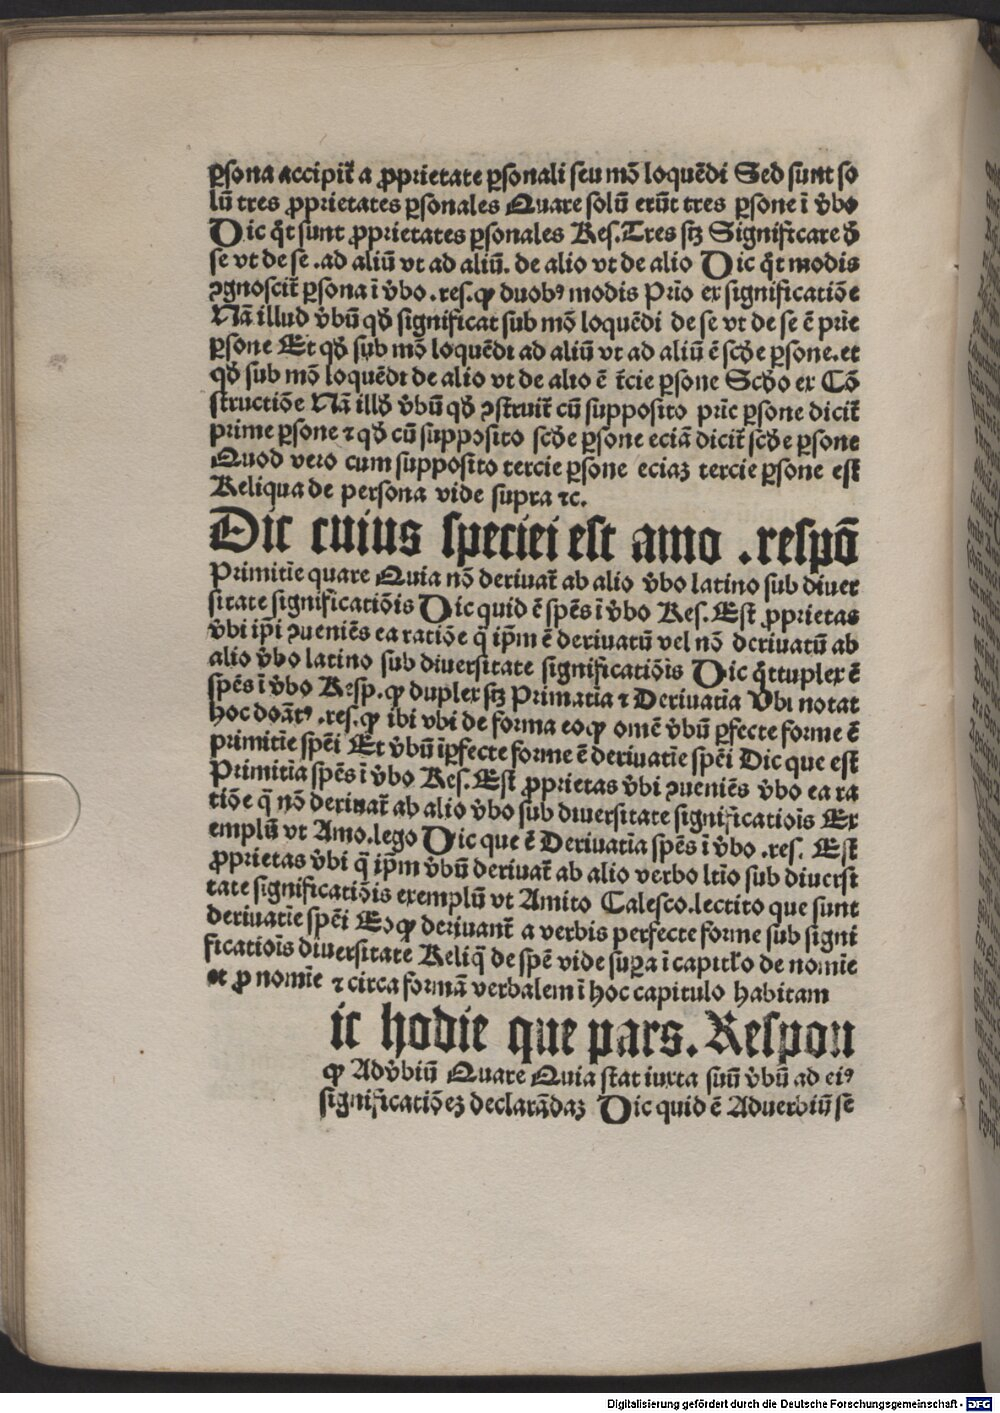 ꝑsona accipit᷑ a ꝓprietate ꝑsonali seu mō loquēdi Sed sunt so
lū tres ꝓprietates ꝑsonales Quare solū erūt tres ꝑsone ī v̄bo
Dic q̄t sunt ꝓprietates ꝑsonales Res. Tres stꝫ Significare d̄
se vt de se .ad aliū vt ad aliū. de alio vt de alio Dic q̄t modis
ꝯgnoscit᷑ ꝑsona ī v̄bo .res. ꝙ duobꝰ modis Prīo ex significatiōe
Nā illud v̄bū qd̄ significat sub mō loquēdi de se vt de se ē prīe
ꝑsone Et qd̄ sub mō loquēdi ad aliū vt ad aliū ē scd̄e ꝑsone. et
qd̄ sub mō loquēdi de alio vt de alio ē t̄cie ꝑsone Scd̄o ex Cō
structiōe Nā illd̄ v̄bū qd̄ ꝯstruit᷑ cū supposito prīe ꝑsone dicit᷑
prime ꝑsone ⁊ qd̄ cū supposito scd̄e ꝑsone eciā dicit᷑ scd̄e ꝑsone
Quod vero cum supposito tercie ꝑsone eciaꝫ tercie ꝑsone est
Reliqua de persona vide supra ⁊c.
Dic cuius speciei est amo .respō
Primitīe quare Quia nō deriuat᷑ ab alio v̄bo latino sub diuer
sitate significatiōis Dic quid ē spēs ī v̄bo Res. Est ꝓprietas
v̄bi ip̄i ꝯueniēs ea ratiōe q̄ ip̄m ē deriuatū vel nō deriuatū ab
alio v̄bo latino sub diuersitate significatiōis Dic q̄ttuplex ē
spēs ī v̄bo Resp. ꝙ duplex stꝫ Primatīa ⁊ Deriuatīa Vbi notat
hoc doāt᷑ꝰ .res. ꝙ ibi vbi de forma eoꝙ omē v̄bū ꝑfecte forme ē
primitīe spēi Et v̄bū īꝑfecte forme ē deriuatīe spēi Dic que est
Primitīa spēs ī v̄bo Res. Est ꝓprietas v̄bi ꝯueniēs v̄bo ea ra
tiōe q̄ nō deriuat᷑ ab alio v̄bo sub diuersitate significatiōis Ex
emplū vt Amo. lego Dic que ē Deriuatīa spēs ī v̄bo .res. Est
ꝓprietas v̄bi q̄ ip̄m v̄bū deriuat᷑ ab alio verbo ltīo sub diuersi
tate significatiōis exemplū vt Amito Calesco. lectito que sunt
deriuatīe spēi Eoꝙ deriuant᷑ a verbis perfecte forme sub signi
ficatiōis diuersitate Reliq̄ de spē vide supra ī capitl̄o de nomīe
et ꝓ nomīe ⁊ circa formā verbalem ī hoc capitulo habitam
ic hodie que pars. Respon
ꝙ Adv̄biū Quare Quia stat iuxta suū v̄bū ad eiꝰ
significatiōeꝫ declarādaꝫ Dic quid ē Aduerbiū sē
Digitalisierung gefördert durch die Deutsche Forschungsgemeinschaft - DFG